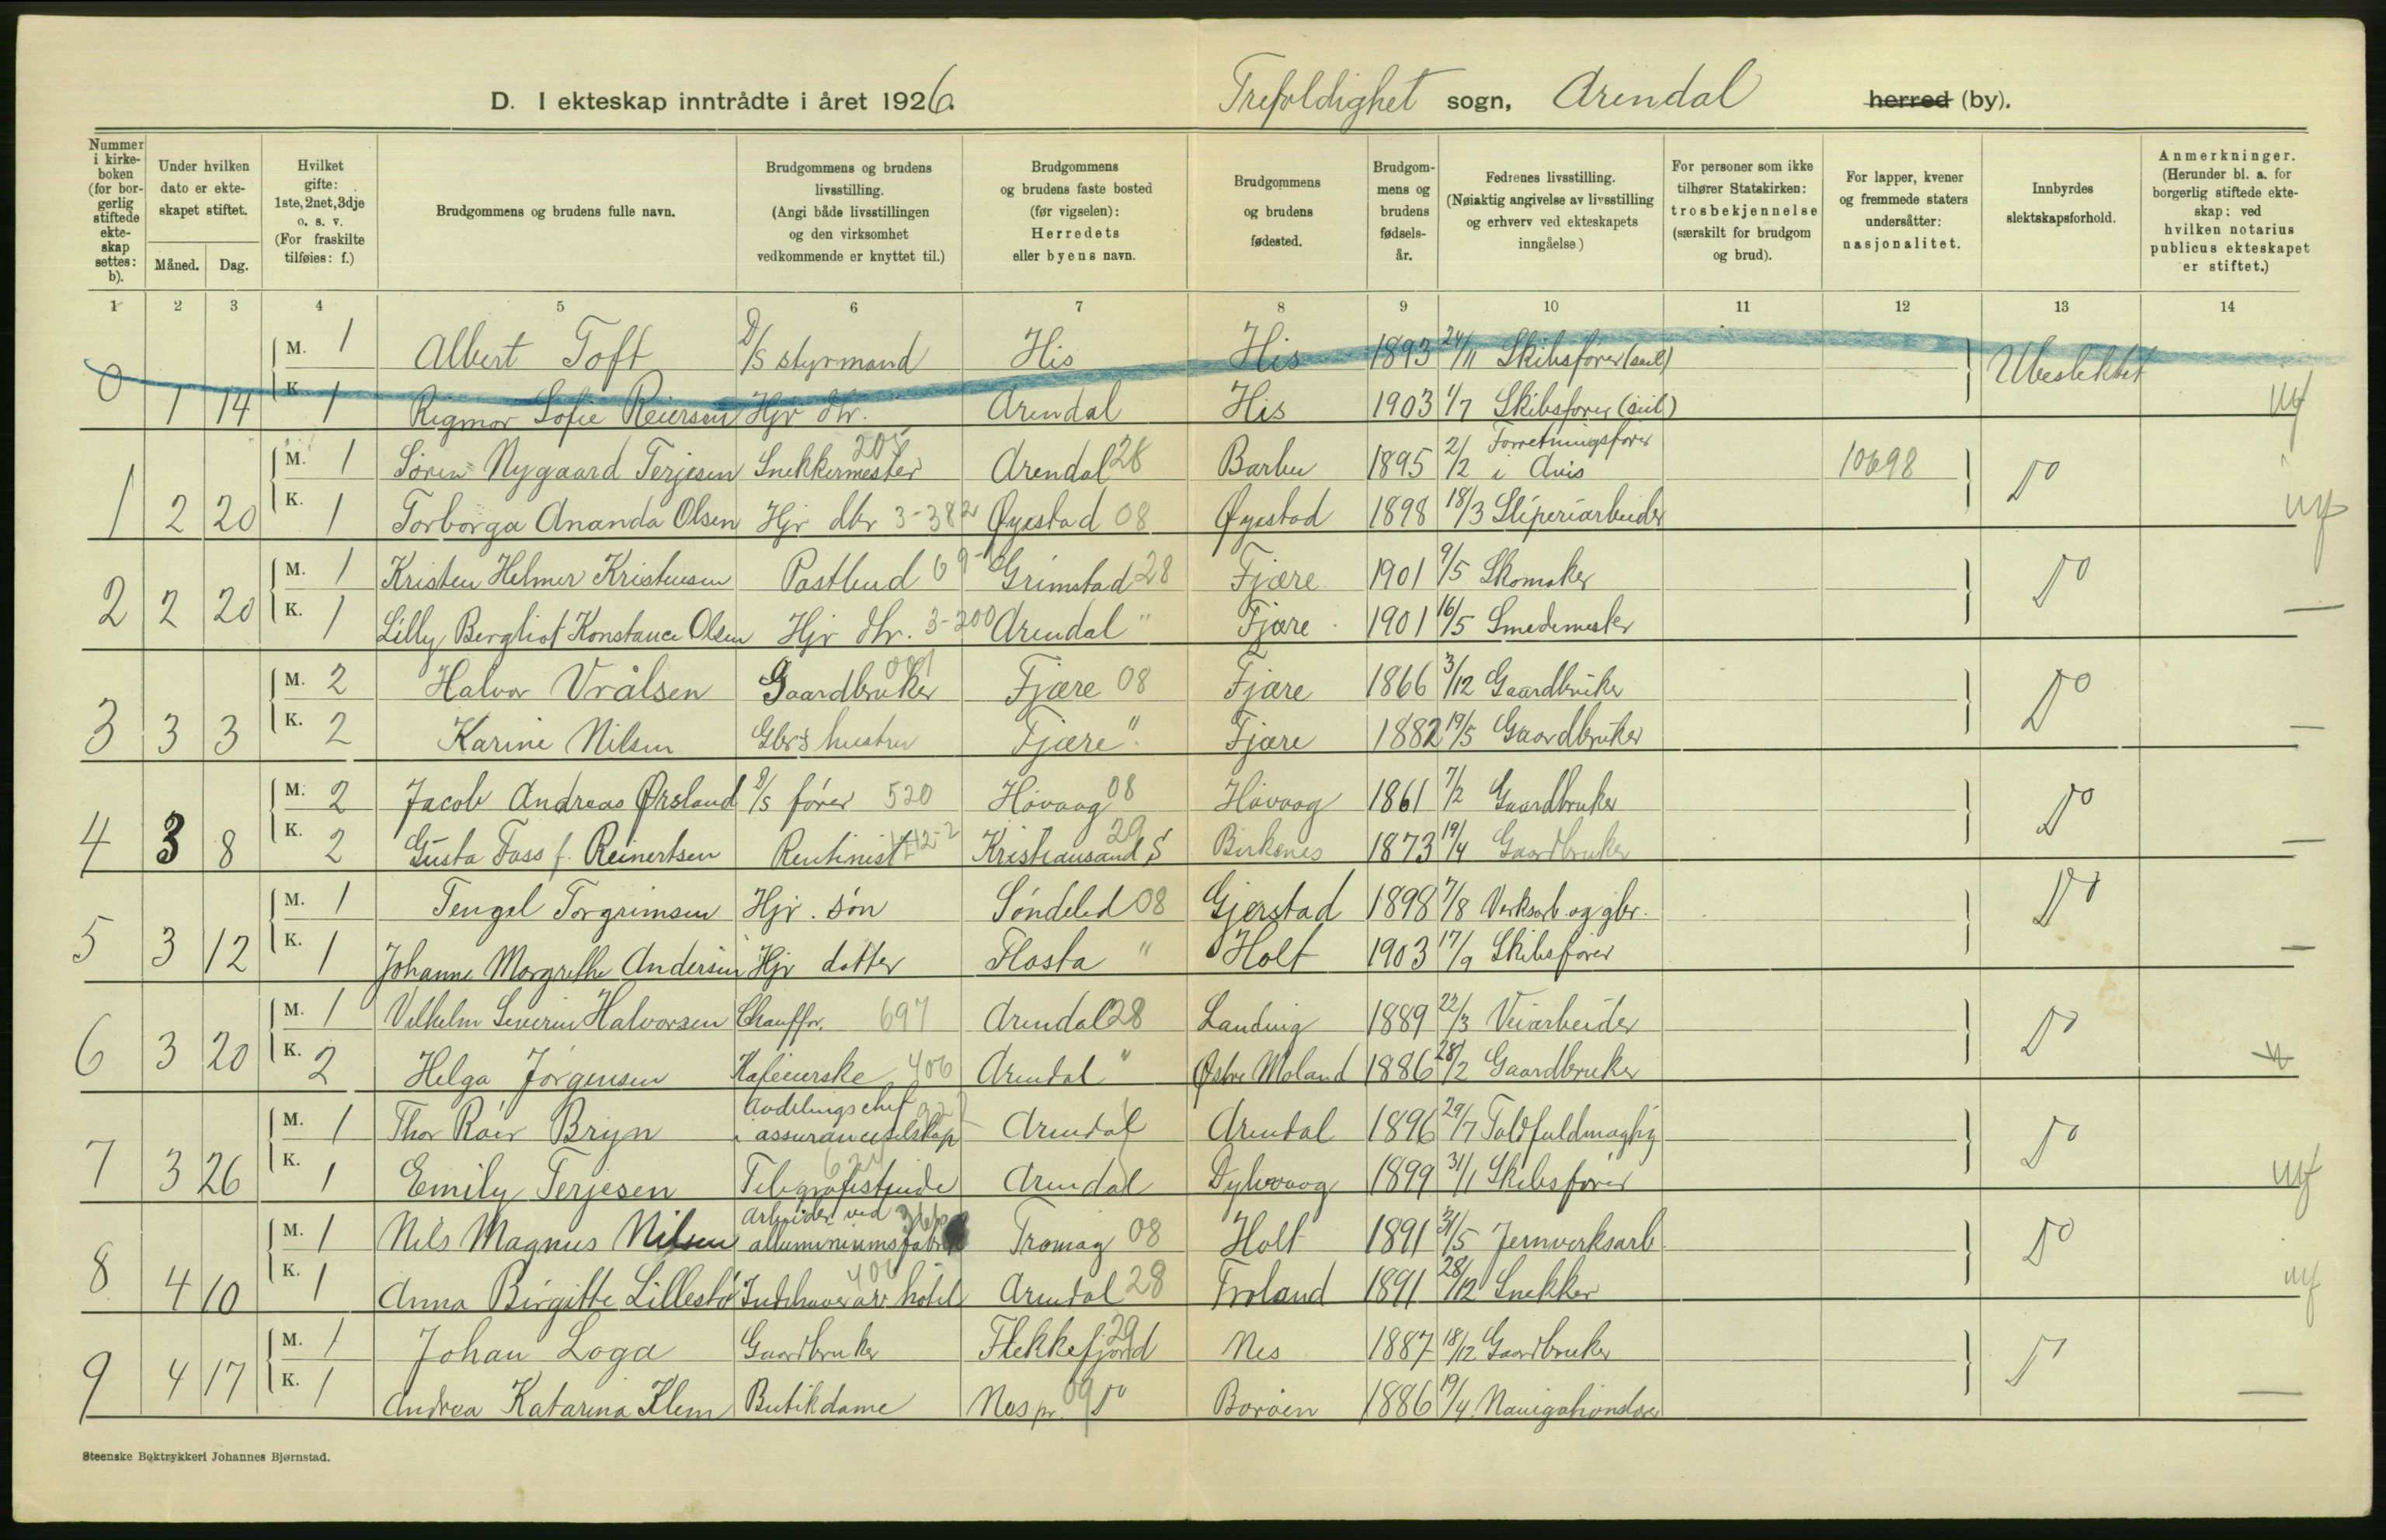 D. I ekteskap inntrådte i året 1926. Trefoldighet sogn, Arendal herred (by).
Nummer i kirke-boken (for bor-gerlig stiftede ekte-skap settes: b).
Under hvilken dato er ekte-skapet stiftet.
Måned. Dag.
Hvilket gifte: 1ste, 2net, 3dje o. s. v. (For fraskilte tilføies: f.)
Brudgommens og brudens fulle navn.
Brudgommens og brudens livsstilling. (Angi både livsstillingen og den virksomhet vedkommende er knyttet til.)
Brudgommens og brudens faste bosted (før vigselen): Herredets eller byens navn.
Brudgommens og brudens fødested.
Brudgom-mens og brudens fødsels-år.
Fedrenes livsstilling. (Nøiaktig angivelse av livsstilling og erhverv ved ekteskapets inngåelse.)
For personer som ikke tilhører Statskirken: trosbekjennelse (særskilt for brudgom og brud).
For lapper, kvener og fremmede staters undersåtter: nasjonalitet.
Innbyrdes slektskapsforhold.
Anmerkninger. (Herunder bl. a. for borgerlig stiftede ekte-skap: ved hvilken notarius publicus ekteskapet er stiftet.)
1 2 3 4 5 6 7 8 9 10 11 12 13 14
M. 1 Albert Toft D/S styrmand His His 1893 24/11 Skibsfører (seil) Ubeslektet
0 1 14 K. 1 Rigmor Sofie Reiersen Hjv dtr. Arendal His 1903 1/7 Skibsfører (seil)
M. 1 Søren Nygaard Terjesen Snekkermester 205 Arendal 28 Barbu 1895 2/2 Forretningsfører i Avis 10698 Do
1 2 20 K. 1 Torborga Ananda Olsen Hjv dtr 3-382 Øyestad 08 Øyestad 1898 18/3 Sliperiarbeider
M. 1 Kristen Helmer Kristensen Postbud 69 Grimstad 28 Fjære 1901 9/5 Skomaker Do
2 2 20 K. 1 Lilly Bergliot Konstance Olsen Hjv dtr. 3-200 Arendal " Fjære 1901 16/5 Smedemester —
M. 2 Halvor Vrålsen Gaardbruker 001 Fjære 08 Fjære 1866 3/12 Gaardbruker Do
3 3 3 K. 2 Karine Nilsen Gbr's hustru Fjære " Fjære 1882 19/5 Gaardbruker —
M. 2 Jacob Andreas Ørsland D/S fører 520 Høvaag 08 Høvaag 1861 7/2 Gaardbruker Do
4 3 8 K. 2 Gusta Foss f. Reinertsen Rentinist Kristiansand S 29 Birkenes 1873 19/4 Gaardbruker —
M. 1 Tengel Torgrimsen Hjv. søn Søndeled 08 Gjerstad 1898 7/8 Verksarb. og gbr. Do
5 3 12 K. 1 Johanne Margrethe Andersen Hjv datter Flosta " Holt 1903 17/9 Skibsfører —
M. 1 Vilhelm Severin Halvorsen Chauffør. 697 Arendal 28 Landvig 1889 22/3 Veiarbeider Do
6 3 20 K. 2 Helga Jørgensen Kafeeierske 406 Arendal " Østre Moland 1886 28/2 Gaardbruker
M. 1 Thor Roer Bryn Avdelingschef i assuranceselskap Arendal Arendal 1896 29/7 Toldfuldmægtig Do
7 3 26 K. 1 Emily Terjesen Telegrafistinde Arendal Dybvaag 1899 31/1 Skibsfører
M. 1 Nils Magnus Nilsen Arbeider ved alluminiumsfabrik Tromøy 08 Holt 1891 31/5 Jernverksarb Do
8 4 10 K. 1 Anna Birgitte Lillestø Indehaver av hotel 406 Arendal 28 Froland 1891 28/12 Snekker
M. 1 Johan Loga Gaardbruker Flekkefjord 29 Nes 1887 18/12 Gaardbruker Do
9 4 17 K. 1 Andrea Katarina Klem Butikdame Nes pr. Do 09 Borøen 1886 19/4 —
Steenske Boktrykkeri Johannes Bjørnstad.